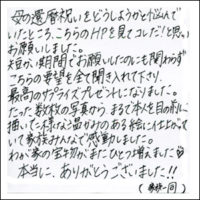 母の還暦祝いをどうしようかと悩んで
いたところ、こちらのHPを見てコレだ!と思い
お願いしました。
短かい期間でお願いしたのにも関わらず
こちらの要望を全て聞き入れて下さり、
最高のサプライズプレゼントになりました。
たった数枚の写真から まるで本人を目の前に
描いた様な温かみのある絵に仕上がって
いて家族みんなで感動しました。
わが家の宝物がまたひとつ増えました
本当に、ありがとうございました!!
一同)